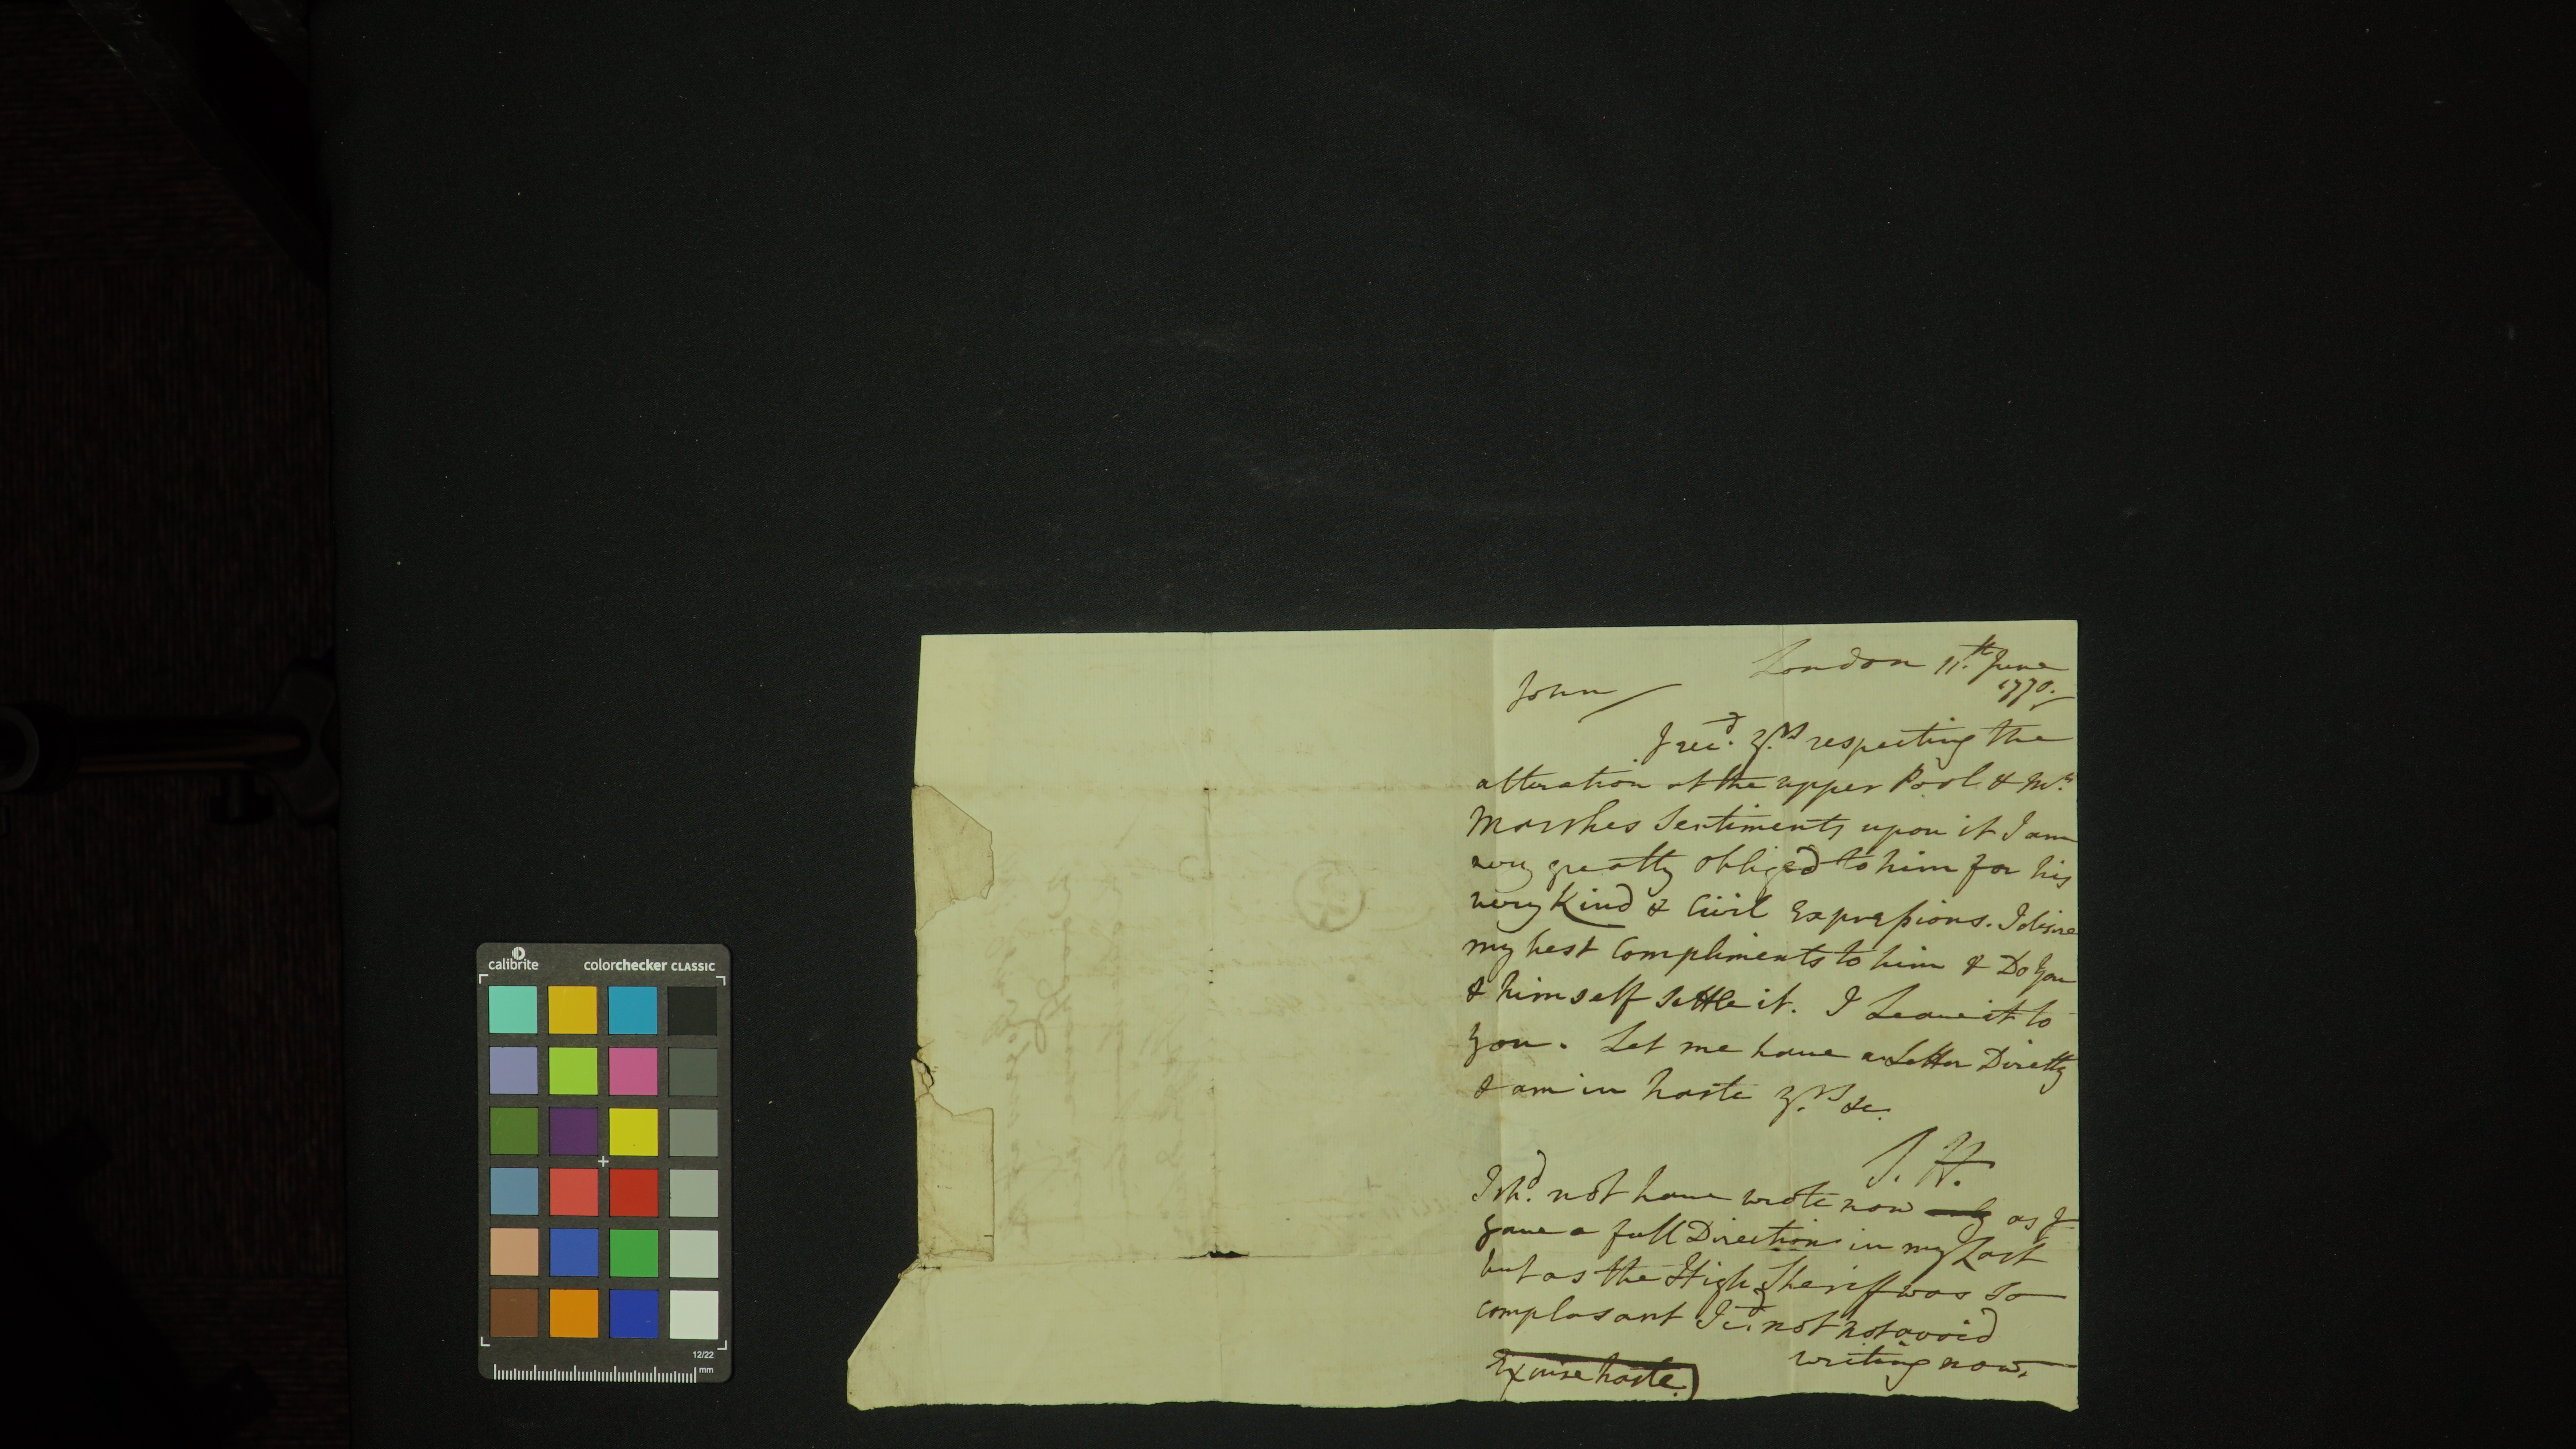 London 11.th June
1770.
John
I rec.d y.rs respecting the
alteration at the upper Pool & Mr.
Marshes Sentiments upon it I am
very greatly obliged to him for his
very Kind & Civil Expressions. I desire
my best Compliments to him & Do you
& himself settle it. I Leave it to
you. Let me have a Letter Directly
& am in haste y.rs &c.
J. H.
I sh.d not have wrote now as I
gave a full Direction in my Last
but as the High Sheriff was so
complasant I c.d not not avoid
writing now.
Excuse haste.
calibrite
colorchecker CLASSIC
12/22
mm